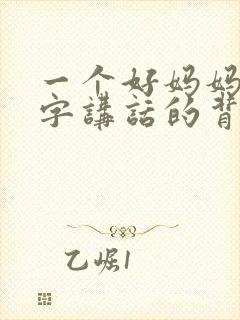 一个好妈妈
字講話的背
乙崛1